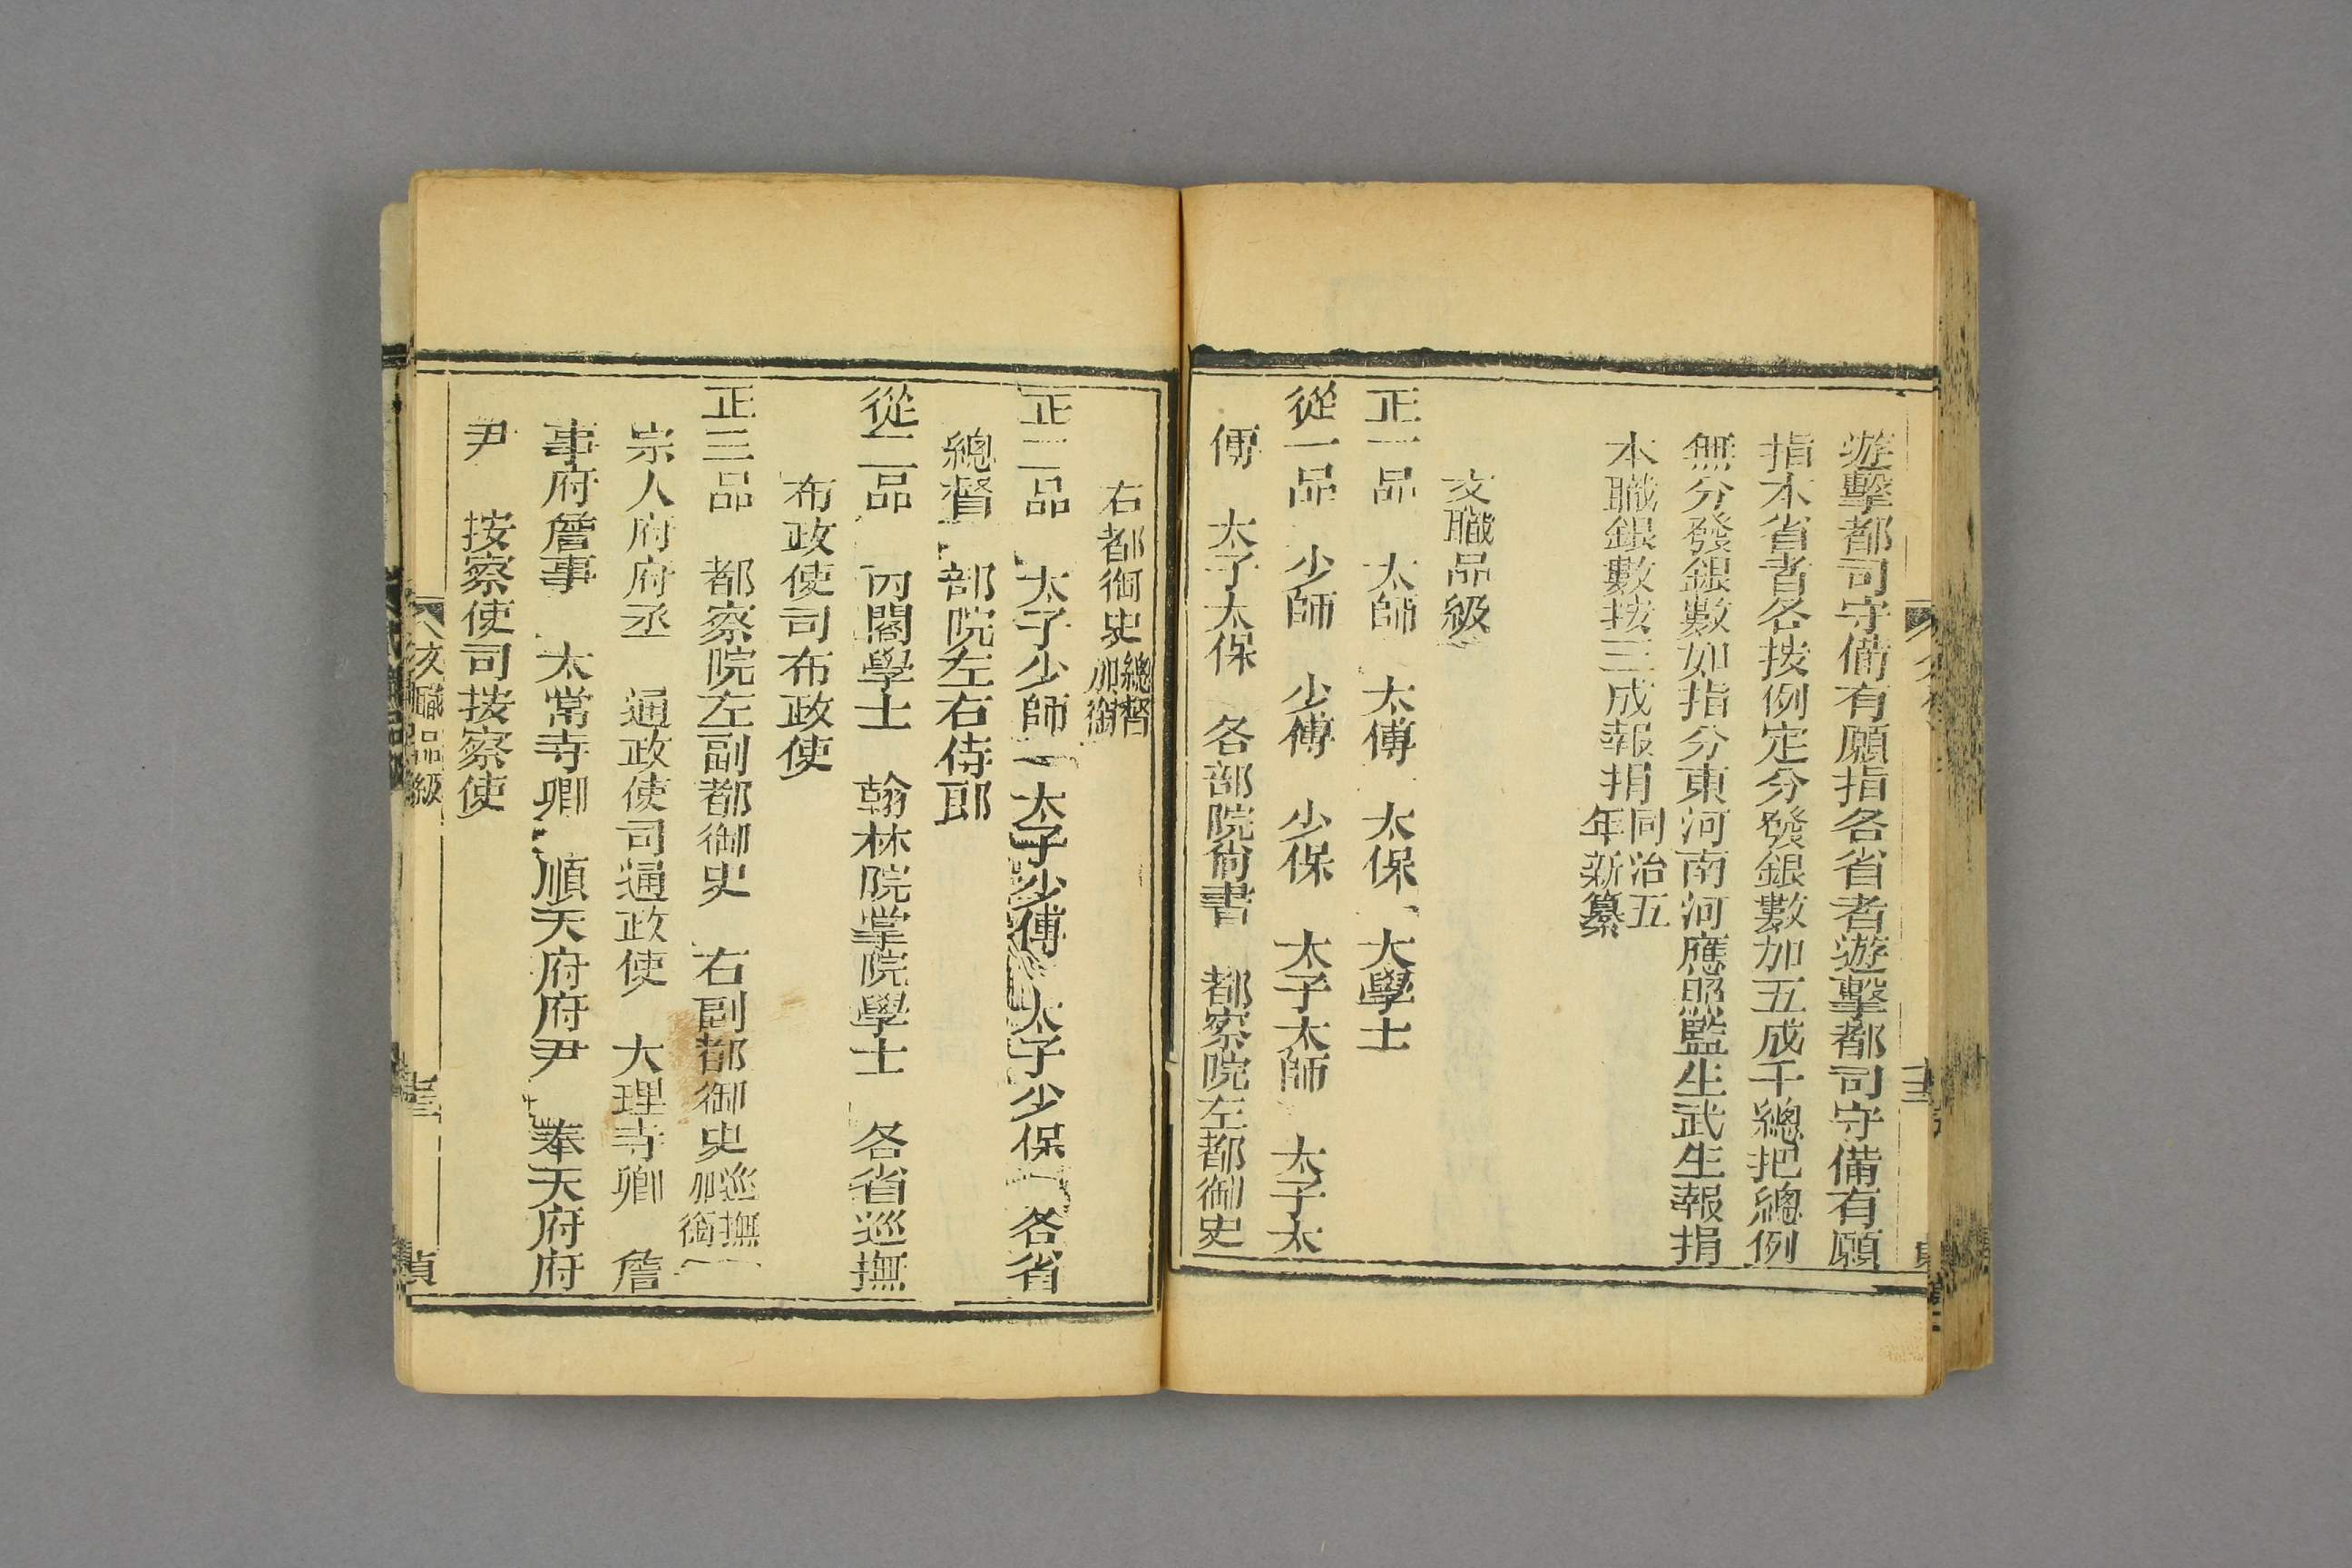 遊擊都司守備有願指各省者遊擊都司守備有願
指本省者各按例定分發銀數加五成千總把總例
無分發銀數如指分東河南河應照監生武生報捐
本職銀數按三成報捐同治五年新纂
文職品級
正一品 太師 太傅 太保 大學士
從一品 少師 少傅 少保 太子太師 太子太
傅 太子太保 各部院尙書 都察院左都御史
右都御史總督加銜
正二品 太子少師 太子少傅 太子少保 各省
總督 部院左右侍郎
從二品 內閣學士 翰林院掌院學士 各省巡撫
布政使司布政使
正三品 都察院左副都御史 右副都御史巡撫加銜
宗人府府丞 通政使司通政使 大理寺卿 詹
事府詹事 太常寺卿 順天府府尹 奉天府府
尹 按察使司按察使
文職品級